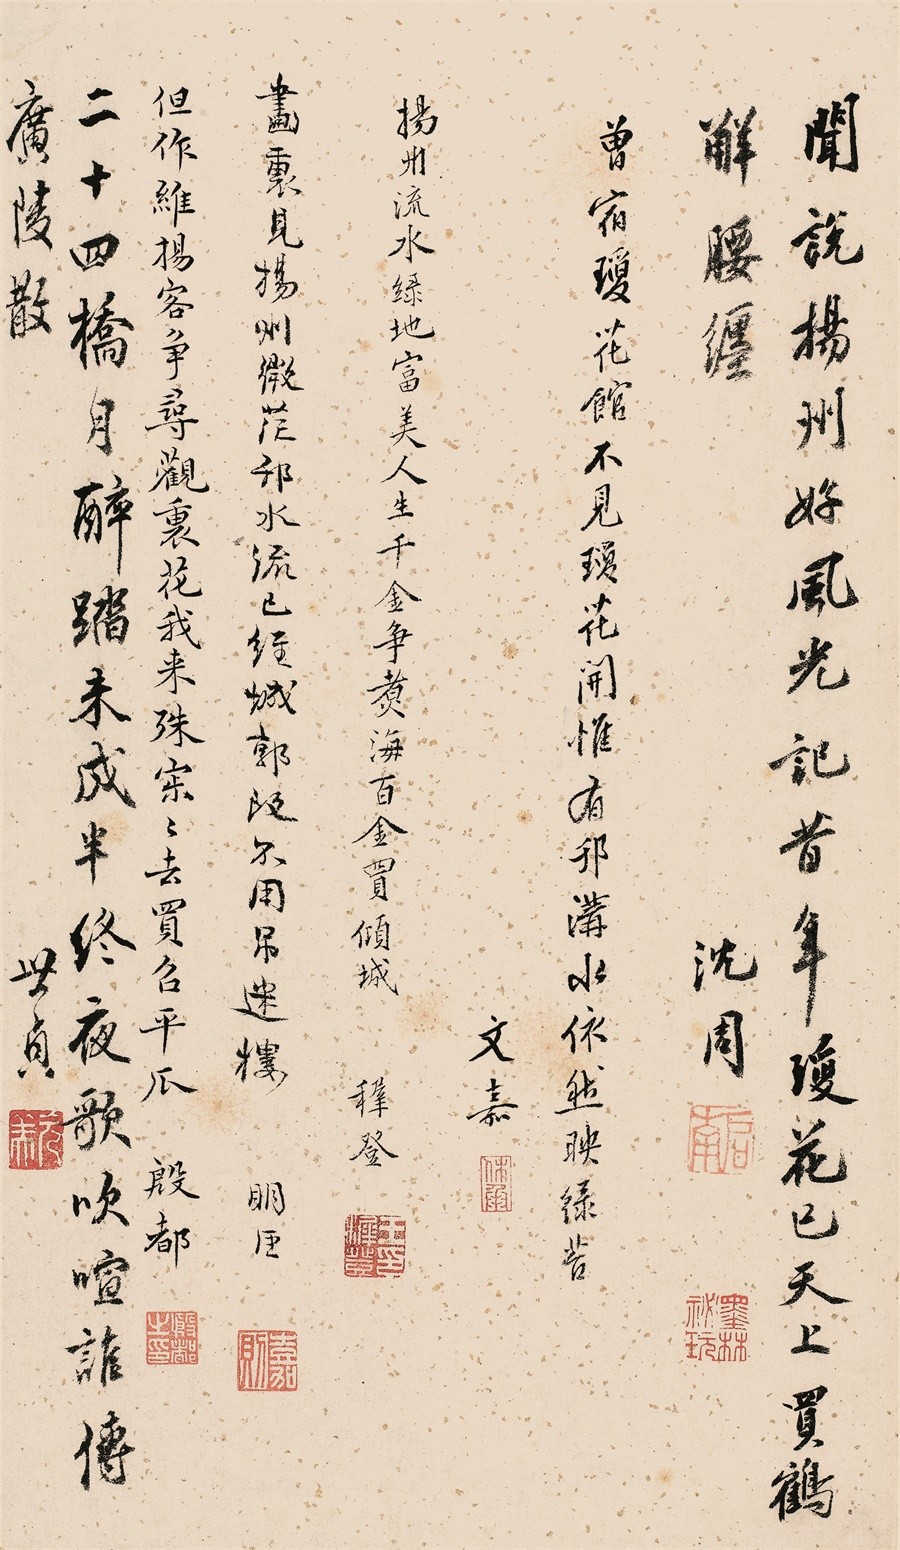 聞說揚州好風光記昔年瓊花已天上買鶴
解腰纏
沈周
啟南
墨林祕玩
曾宿瓊花館不見瓊花開惟有邗溝水依然映綠苔
文嘉
休承
揚州流水綠地富美人生千金爭煮海百金買傾城
穉登
王穉登印
畫裏見揚州微茫邗水流已經城郭改不用吊迷樓
明臣
嘉則
但作維揚客爭尋觀裏花我来殊寂〻去買召平瓜
殷都
殷都之印
二十四橋月醉踏未成半終夜歌吹喧誰傳
廣陵散
世貞
元美